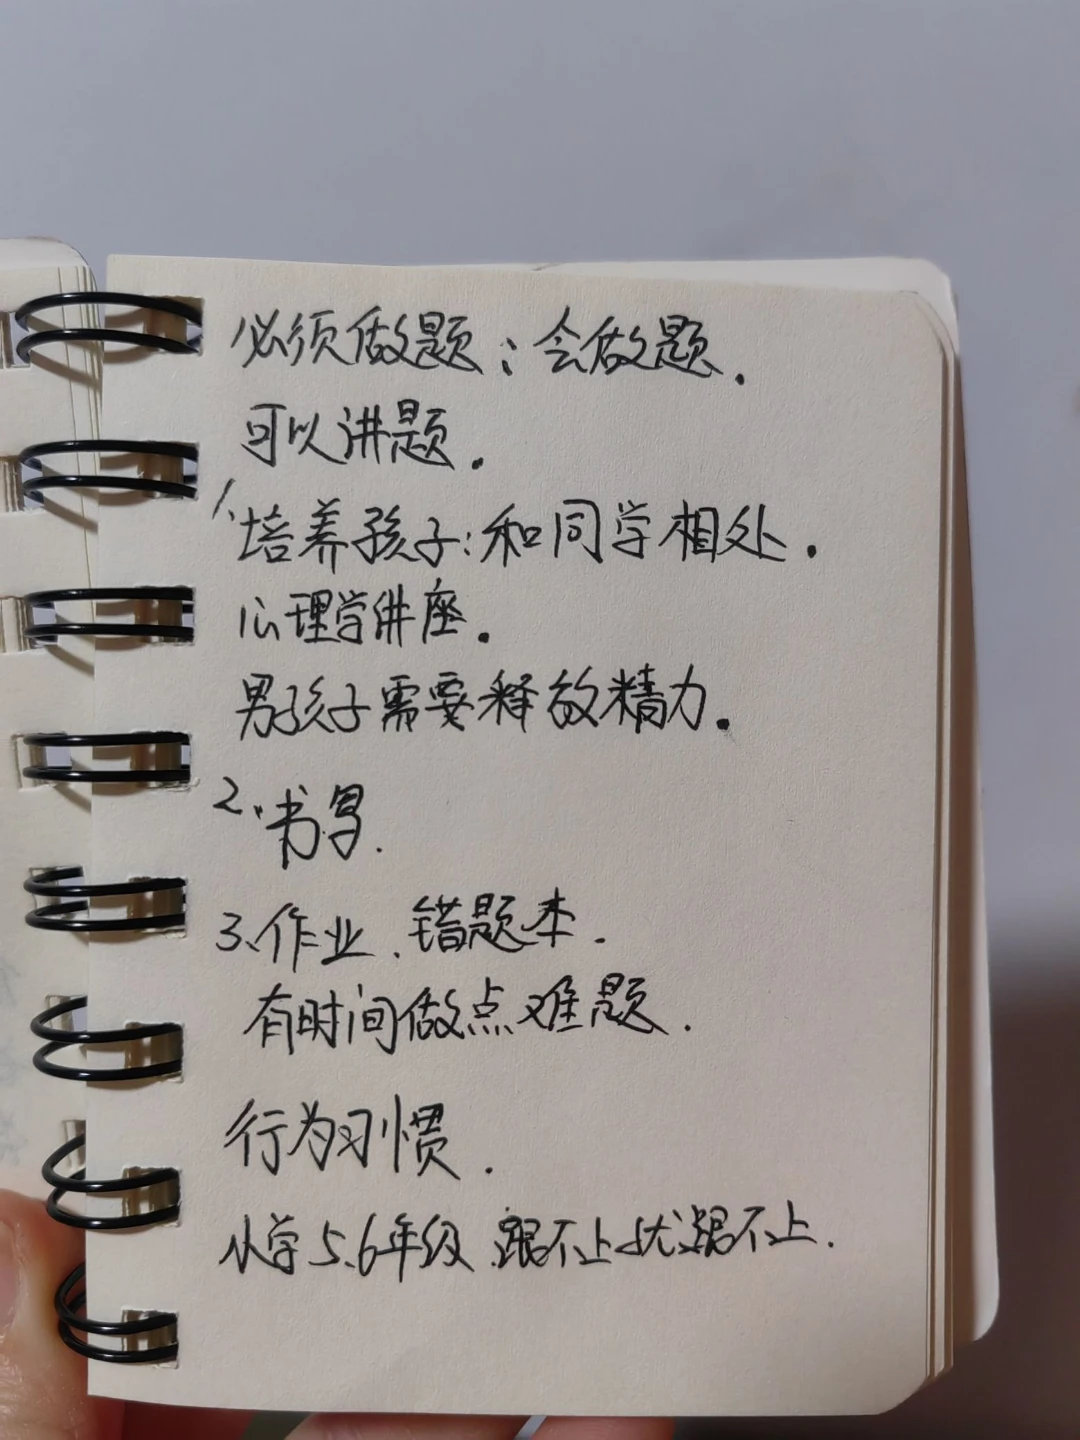 必须做题；会做题.
可以讲题.
1、培养孩子：和同学相处.
心理学讲座.
男孩子需要释放精力.
2、书写.
3、作业、错题本.
有时间做点难题.
行为习惯.
小学5、6年级、跟不上就跟不上.